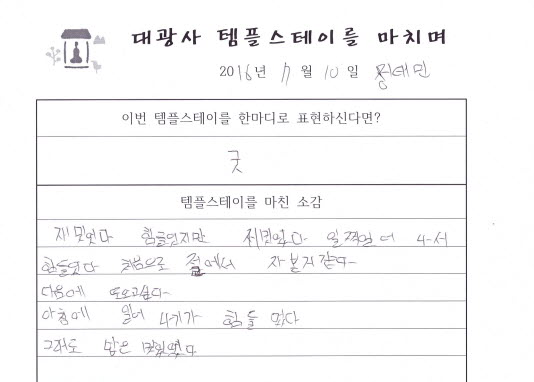 대광사 템플스테이를 마치며
2016년 7월 10일
이번 템플스테이를 한마디로 표현하신다면?
굿
템플스테이를 마친 소감
재밌었다 힘들었지만 재밌었다 일찍일어나서
힘들었다 처음으로 절에서 자본거같다
다음에 또오고싶다
아침에 일어나기가 힘들었다
그래도 밥은 맛있었다